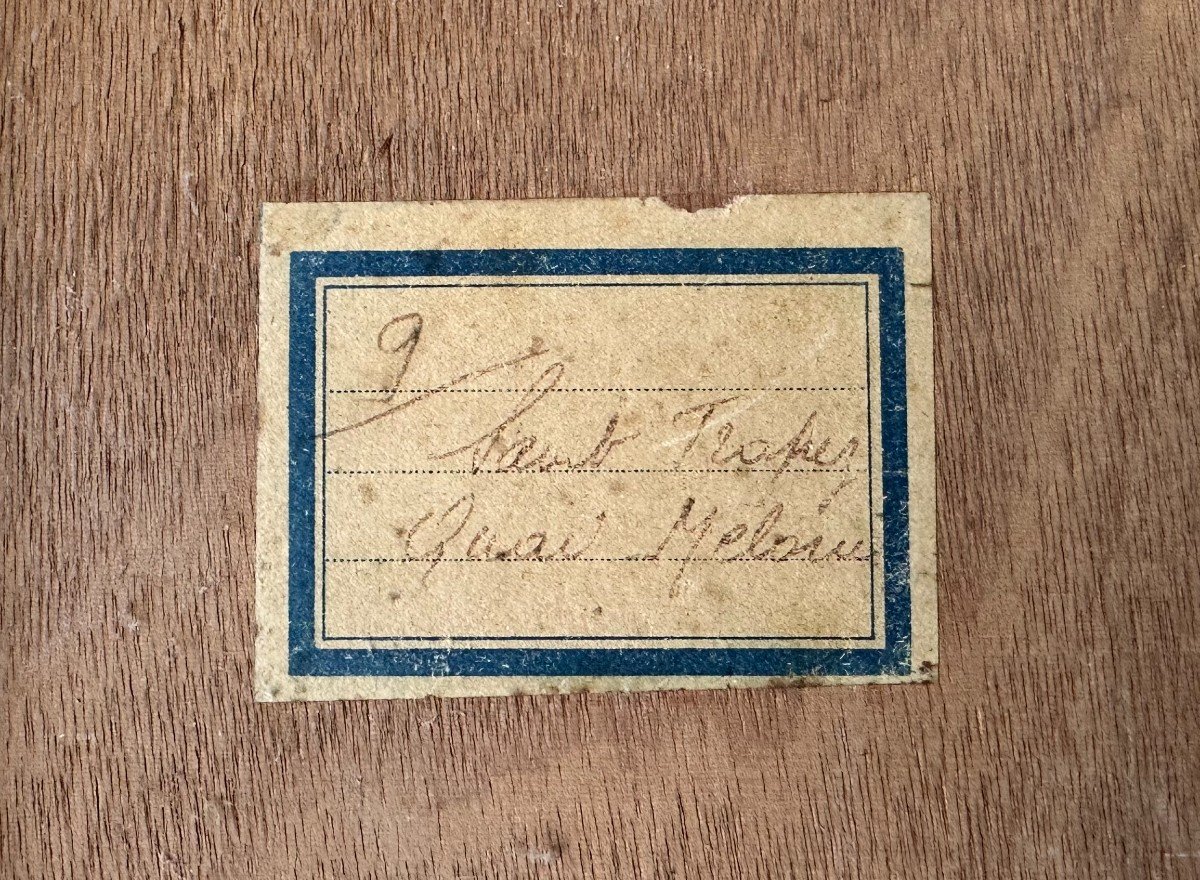 9/
Saint Tropez
Quai